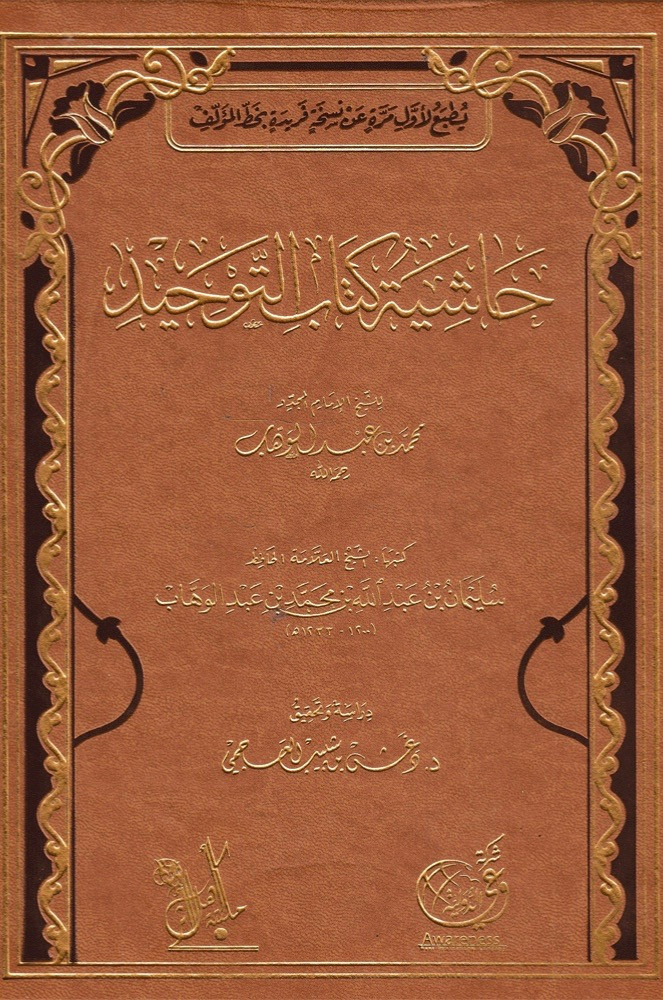 يُطبَعُ لأوَّلِ مَرَّةٍ عَنْ نُسْخَةٍ فَرِيدَةٍ بِخَطِّ المُؤَلِّفِ
حَاشِيَة كِتَابِ التَّوْحِيْدِ
للشيخ الإمام المجدد
محمد بن عبد الوهاب
رحمه الله
كتبها: الشيخ العلامة الحافظ
سُلَيْمَانُ بْنُ عَبْدِ اللَّهِ بْنِ مُحَمَّدِ بْنِ عَبْدِ الوَهَّابِ
(١٢٠٠ - ١٢٣٣هـ)
دراسة وتحقيق
د. دغش بن شبيب العجمي
شركة
وعي
Awareness
مكتبة